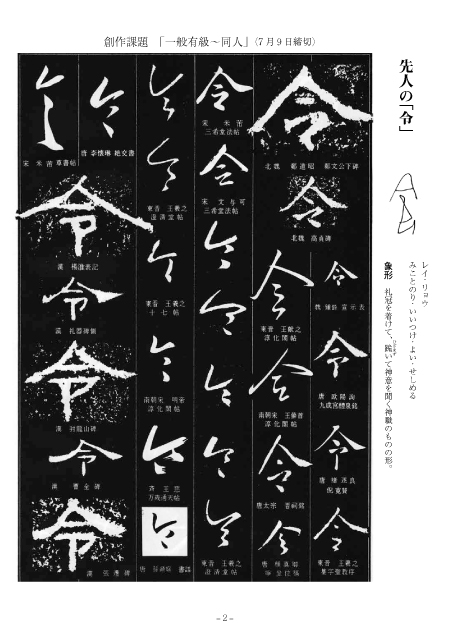 創作課題 「一般有級～同人」(7月9日締切)
先人の「令」
レイ・リョウ
みことのり・いいつけ・よい・せしめる
象形 礼冠を着けて、跪いて神意を聞く神職のものの形。
ひざまず
令
北魏 鄭道昭 鄭文公下碑
令
北魏 高貞碑
令
魏 鍾繇 宣示表
令
唐 欧陽詢
九成宮醴泉銘
令
唐 褚遂良
倪寛賛
令
東晋 王羲之
集字聖教序
令
東晋 王献之
淳化閣帖
令
南朝宋 王
淳化閣帖
令
唐太宗 晋祠銘
令
唐
令
宋 米芾
三希堂法帖
令
宋 文与可
三希堂法帖
令
令
令
令
令
東晋 王羲之
澄清堂帖
令
令
東晋 王羲之
澄清堂帖
令
東晋 王羲之
十七帖
令
南朝宋 明帝
淳化閣帖
令
王慈
万歳通天帖
令
唐 孫過庭 書譜
令
唐 李懐琳 絶交書
令
宋 米芾 草書帖
令
漢 楊淮表記
令
漢 礼器碑側
令
漢 封龍山碑
令
漢 曹全碑
令
漢 張遷碑
－2－